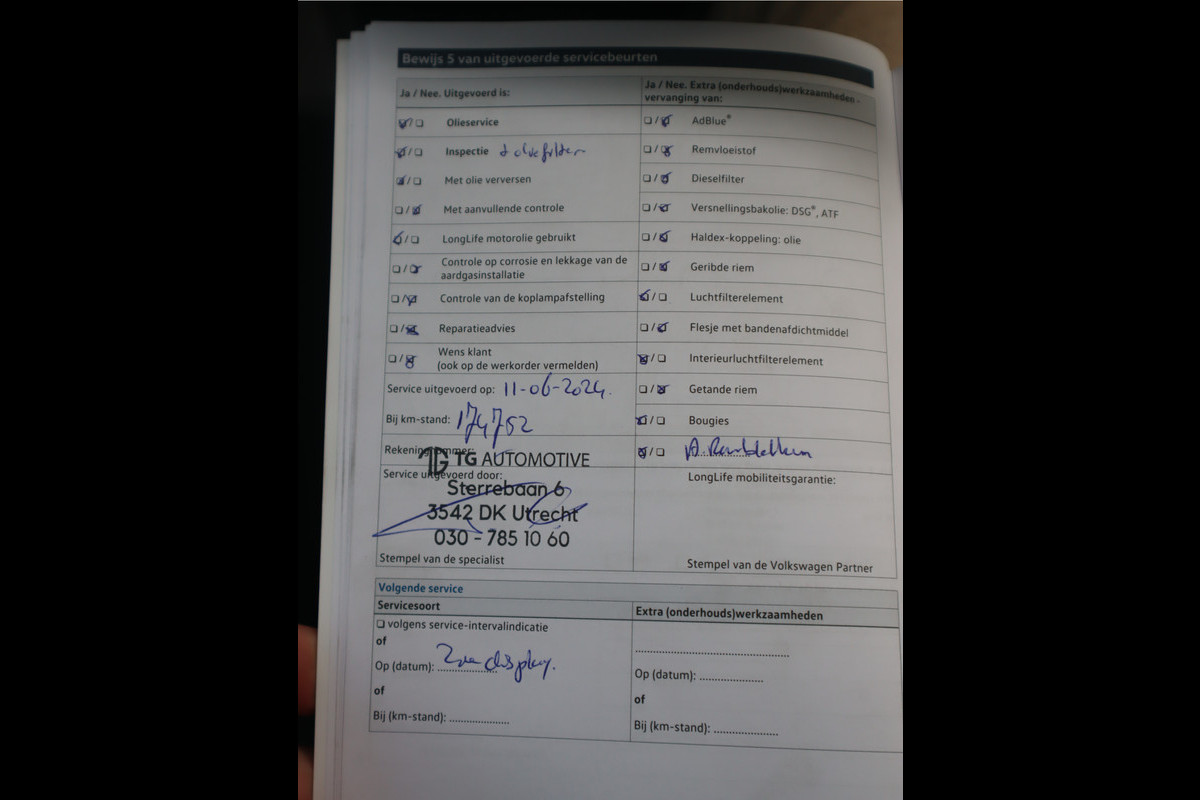 Bewijs 5 van uitgevoerde servicebeurten
Ja / Nee. Uitgevoerd is:
Olieservice
Inspectie + oliefilter
Met olie verversen
Met aanvullende controle
LongLife motorolie gebruikt
Controle op corrosie en lekkage van de
aardgasinstallatie
Controle van de koplampafstelling
Reparatieadvies
Wens klant
(ook op de werkorder vermelden)
Service uitgevoerd op: 11-06-2024.
Bij km-stand: 174762
TG TG AUTOMOTIVE
Service uitgevoerd door:
Sterrebaan 6
3542 DK Utrecht
030 - 785 10 60
Stempel van de specialist
Ja / Nee. Extra (onderhouds)werkzaamheden -
vervanging van:
AdBlue®
Remvloeistof
Dieselfilter
Versnellingsbakolie: DSG®, ATF
Haldex-koppeling: olie
Geribde riem
Luchtfilterelement
Flesje met bandenafdichtmiddel
Interieurluchtfilterelement
Getande riem
Bougies
LongLife mobiliteitsgarantie:
Stempel van de Volkswagen Partner
Volgende service
Servicesoort
volgens service-intervalindicatie
of
Op (datum): Zie display.
of
Bij (km-stand): ....................
Extra (onderhouds)werkzaamheden
Op (datum): ....................
of
Bij (km-stand): ....................